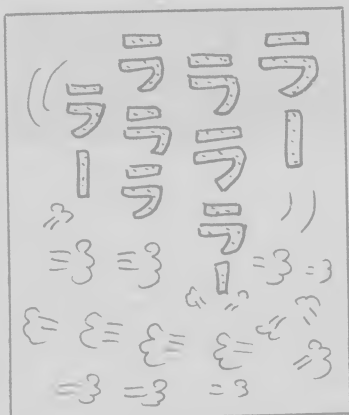 ラー
ラララー
ラララ
ラー